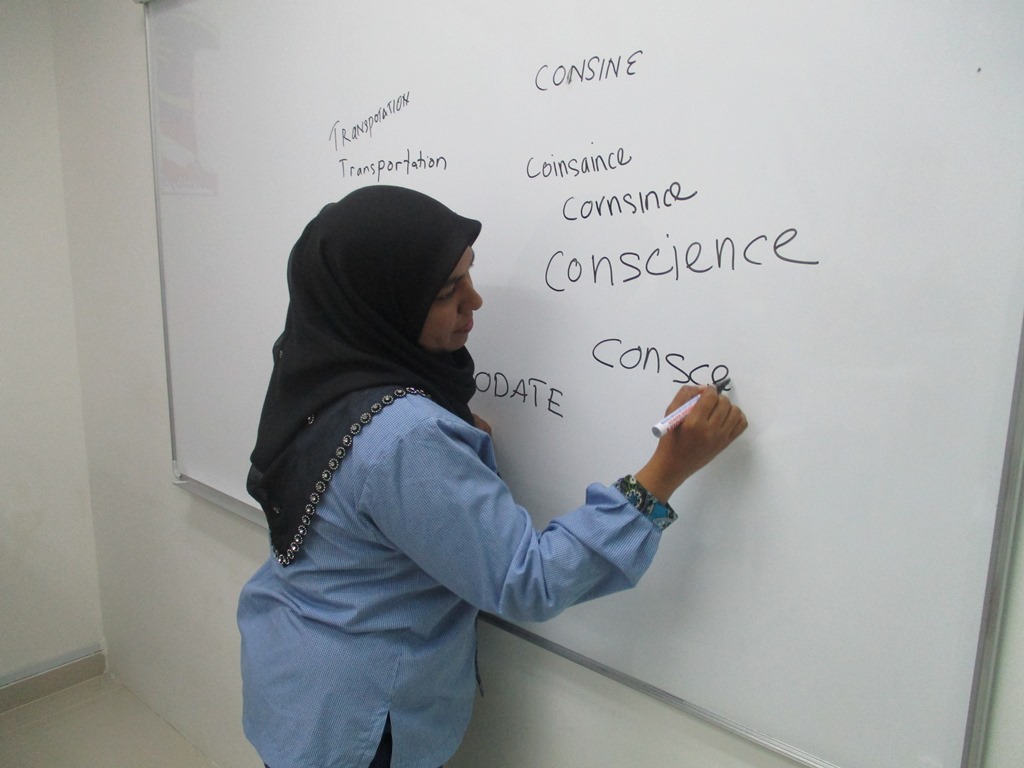 CONSINE
TRANSPOTATION
Transportation
Coinsaince
Cornsince
Conscience
Consce
ODATE